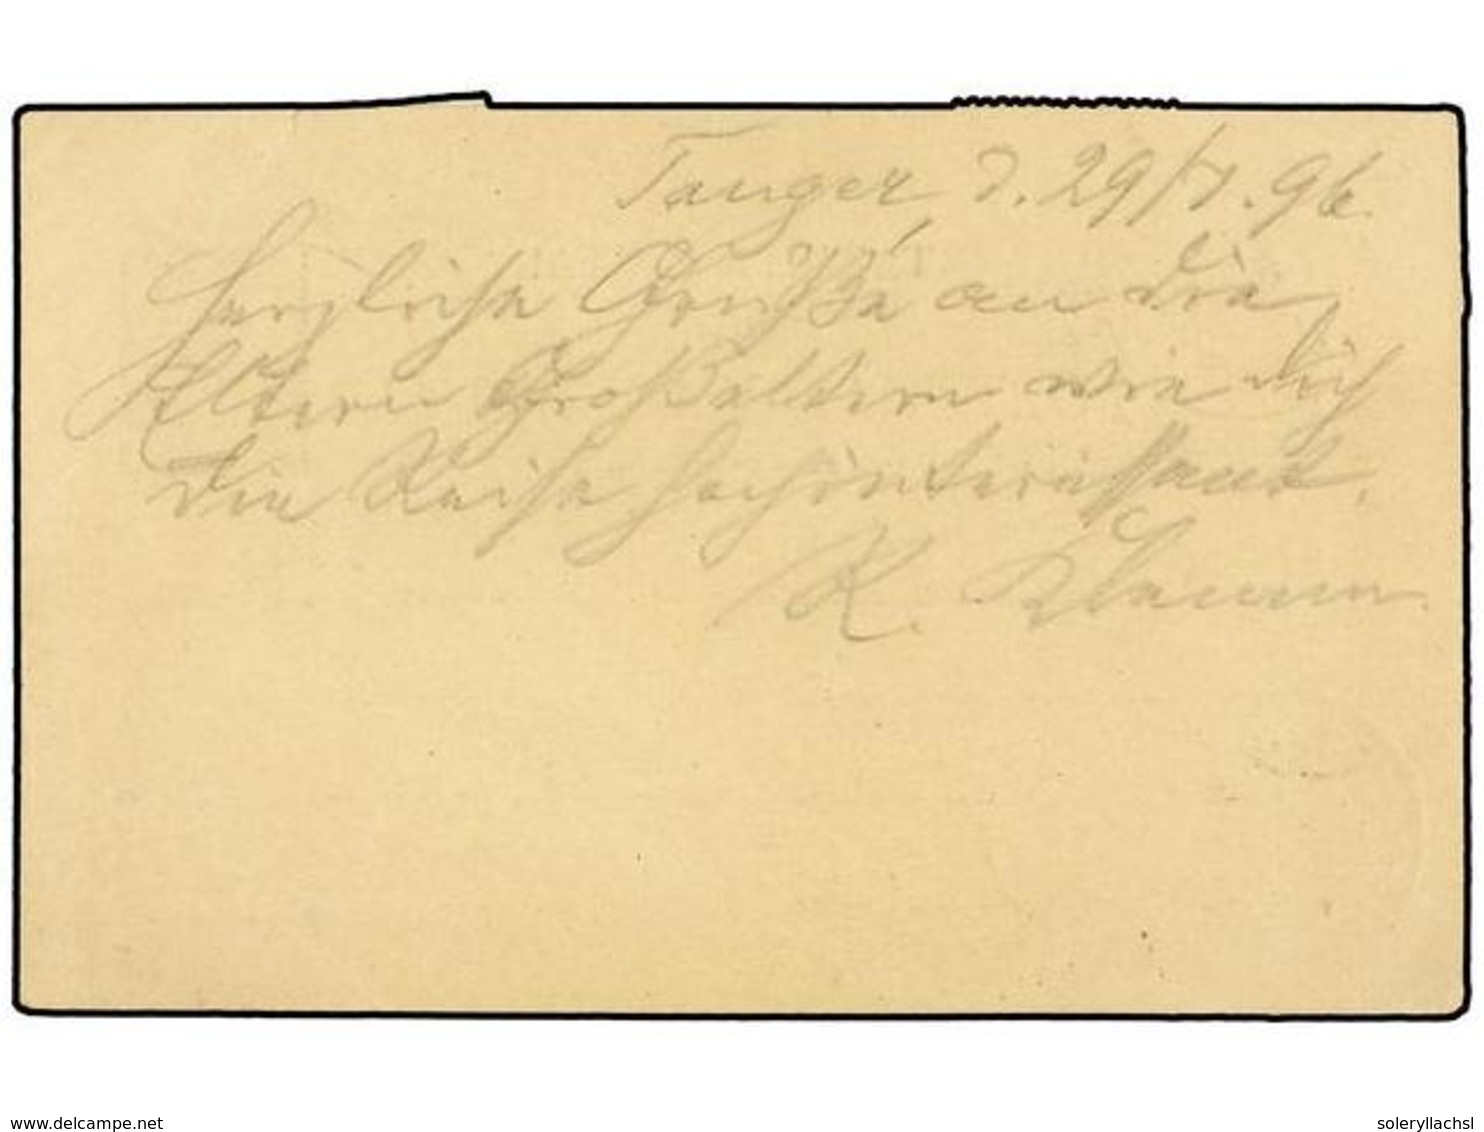 Tanger, d. 29/ . 96.
Herzliche Grüße an die
Eltern Großeltern wie dich
Die Reise hochinteressant.
K.
www.delcampe.net
soleryllachsl